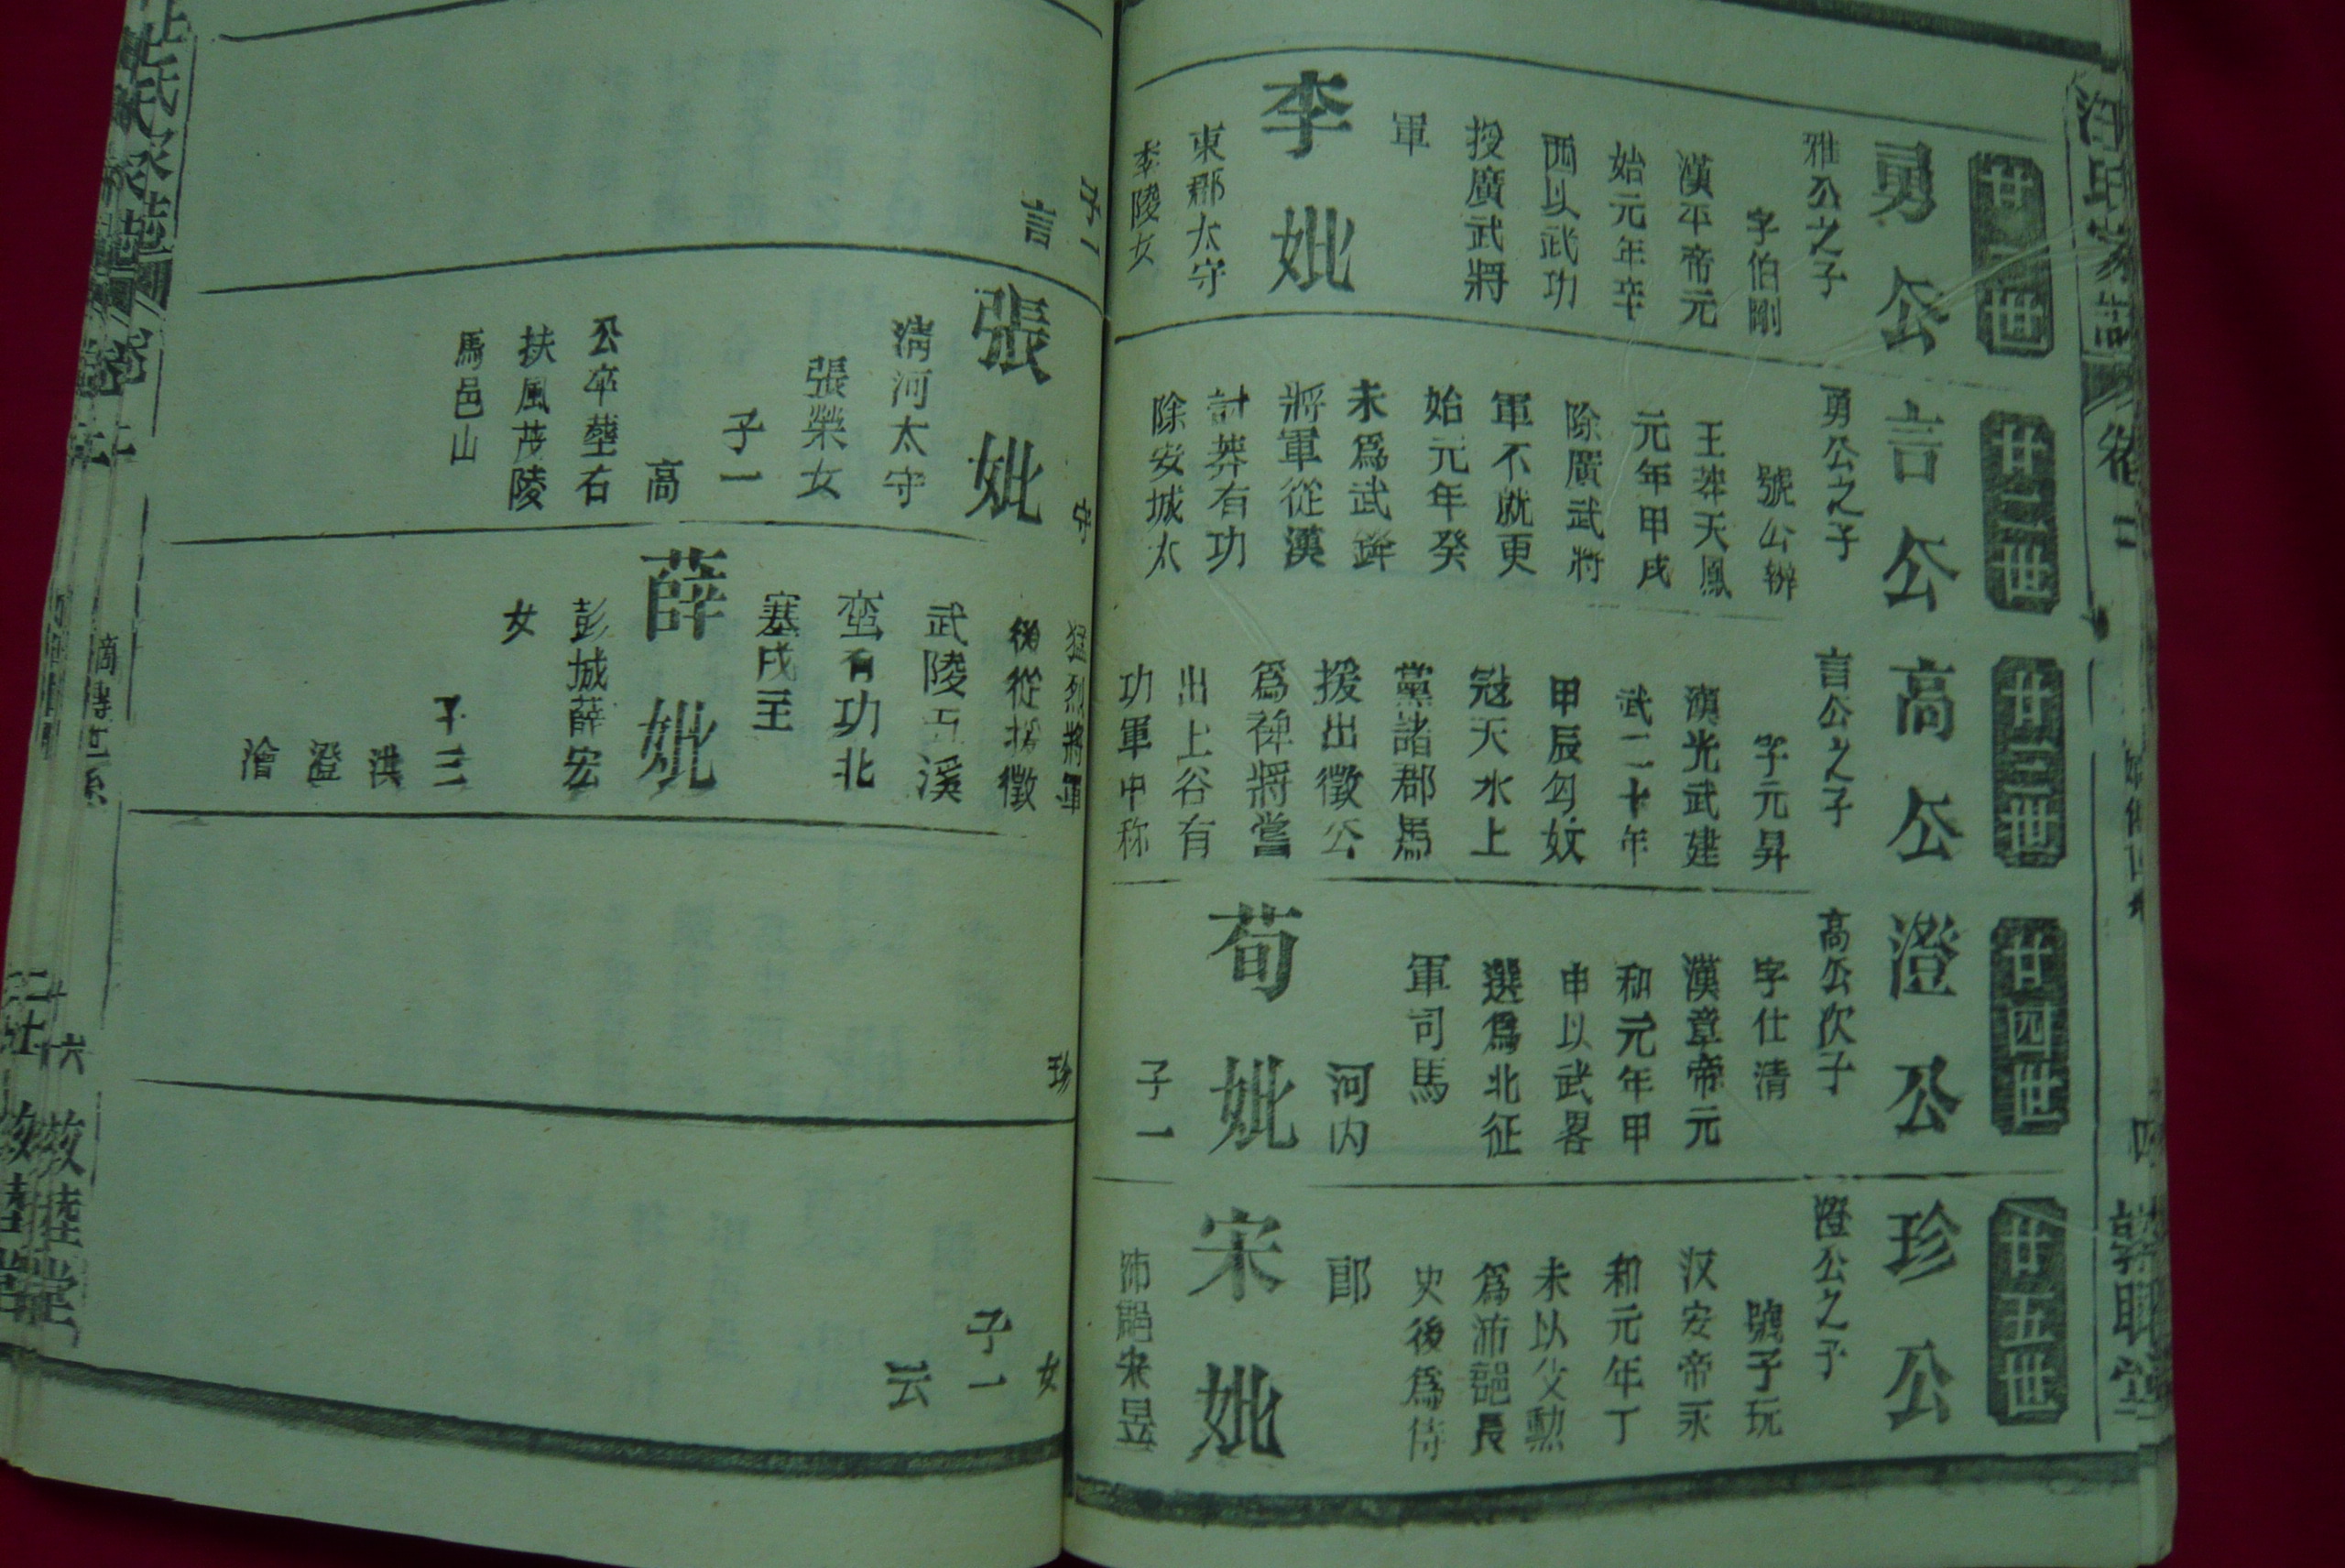 汪氏家譜
卷二
廿一世
勇公
雅公之子
字伯剛
漢平帝元
始元年辛
酉以武功
授廣武將
軍
李妣
東郡太守
李陵女
子一
言
廿二世
言公
勇公之子
號公辦
王莽天鳳
元年甲戌
除廣武將
軍不就更
始元年癸
未爲武鋒
將軍從漢
討莽有功
除安城太
守
張妣
淸河太守
張榮女
子一
高
公卒塟右
扶風茂陵
馬邑山
廿三世
高公
言公之子
字元昇
漢光武建
武二十年
甲辰匈奴
冦天水上
黨諸郡馬
援出徵公
爲裨將嘗
出上谷有
功軍中称
猛烈將軍
後從援徵
武陵五溪
蛮有功北
塞戍主
薛妣
彭城薛宏
女
子三
洪
澄
澮
廿四世
澄公
高公次子
字仕清
漢章帝元
和元年甲
申以武畧
選爲北征
軍司馬
河内
荀妣
子一
珍
廿五世
珍公
澄公之子
號子玩
汉安帝永
和元年丁
未以父勲
爲沛郒長
史後爲侍
郎
宋妣
沛郒宋昱
女
子一
云